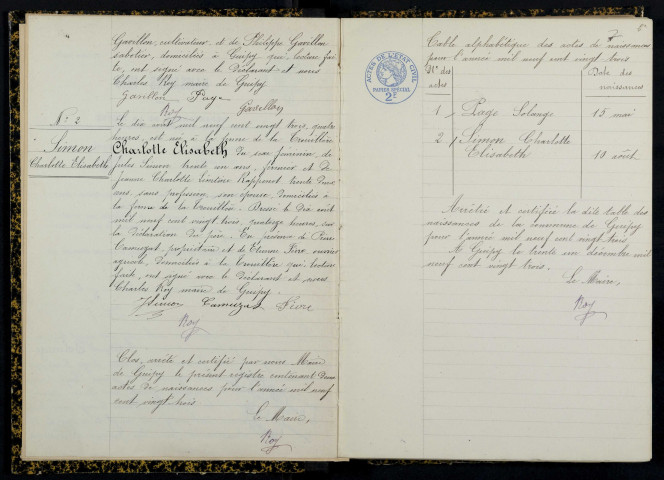 Gavillon, cultivateur, et de Philippe Gavillon
sabotier, domiciliés à Guipy qui, lecture fai-
te, ont signé avec le Déclarant et nous
Charles Roy maire de Guipy.
Gavillon Page Gavillon
Roy
N: 2
Simon
Charlotte Elisabeth
Le dix août mil neuf cent vingt trois, quatre
heures, est née à la ferme de la Trouillère
Charlotte Elisabeth du sexe féminin, de
Jules Simon trente un ans, fermier et de
Jeanne Charlotte Rapponet, trente deux
ans, sans profession, son épouse, domiciliés à
la ferme de la Trouillère. Dressé le dix août
mil neuf cent vingt trois, heures, sur
la déclaration du père. En présence de
Camuzat, propriétaire et de Etienne Pèvre, ouvrier
agricole, domiciliés à la Trouillère qui, lecture
faite, ont signé avec le Déclarant et nous
Charles Roy maire de Guipy.
JSimon Camuzat Pèvre
Roy
Clos, arrêté et certifié par nous Maire
de Guipy le présent registre contenant deux
actes de naissances pour l'année mil neuf
cent vingt trois.
Le Maire,
Roy
ACTES DE L'ÉTAT CIVIL
PAPIER SPÉCIAL
2F
Table alphabétique des actes de naissances
pour l'année mil neuf cent vingt trois
Nos des actes
Date des naissances
1 Page Solange 15 mai
2 Simon Charlotte
Elisabeth 10 août
Arrêtée et certifiée la dite table des
naissances de la commune de Guipy
pour l'année mil neuf cent vingt trois
A Guipy le trente un décembre mil
neuf cent vingt trois.
Le Maire,
Roy